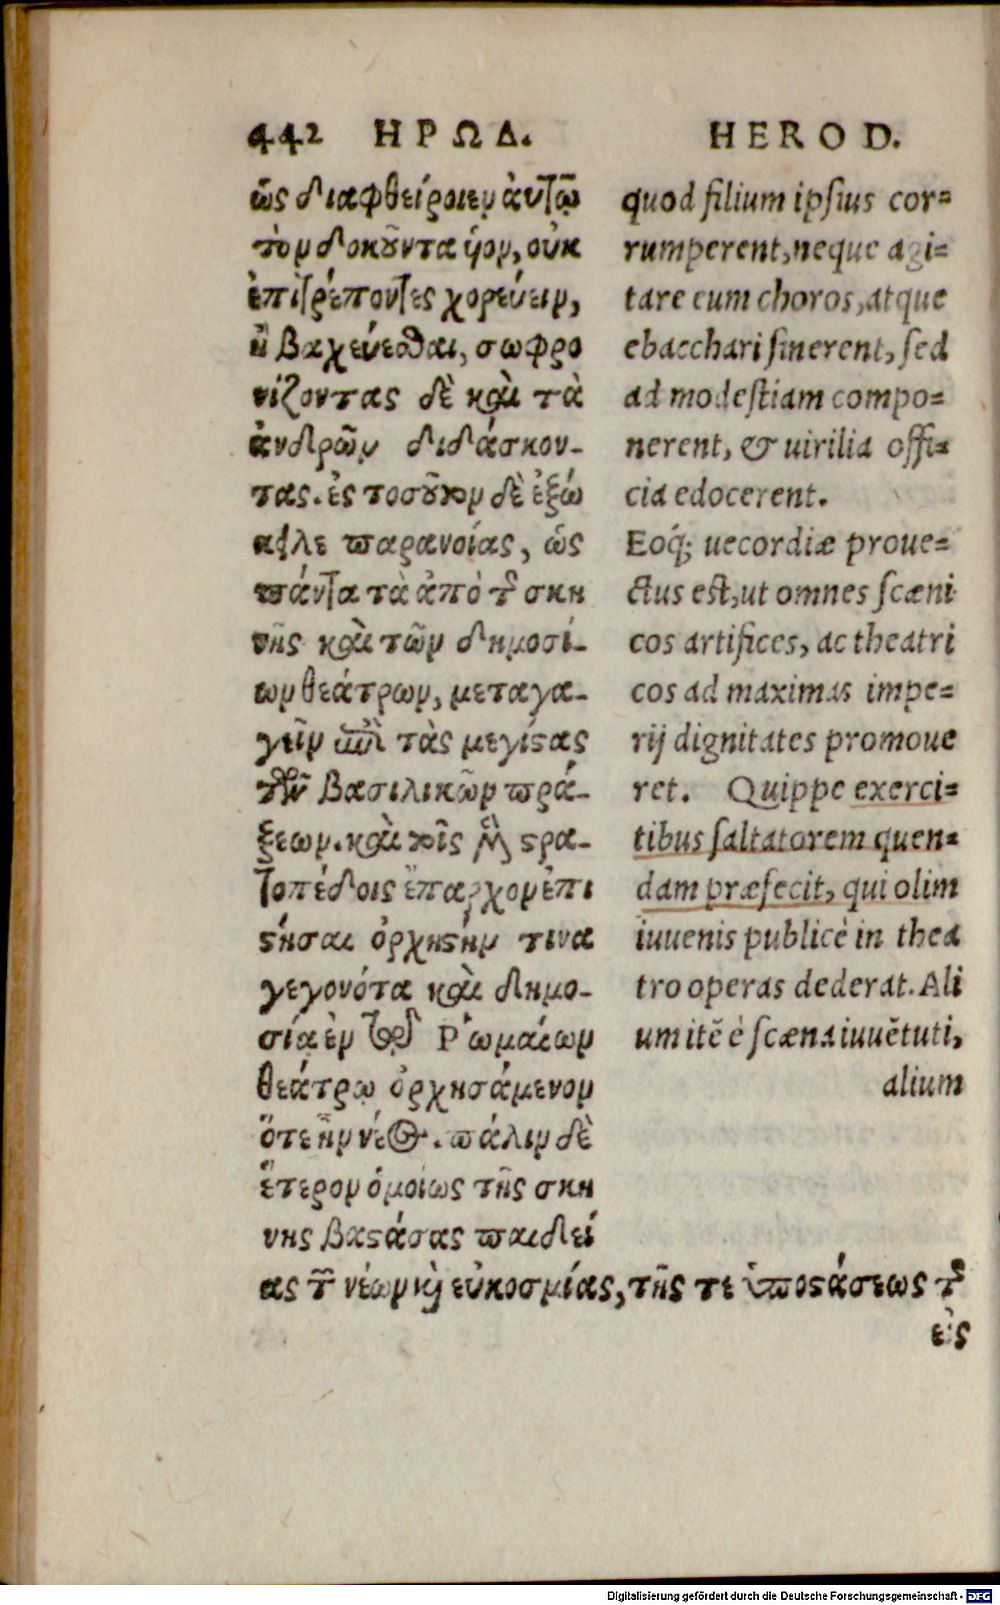 442 ΗΡΩΔ.
ὡς διαφθείροιεν αὐτῷ
τὸν δοκοῦντα υἱὸν, οὐκ
ἐπιτρέποντες χορεύειν,
ἢ βακχεύεσθαι, σωφρο
νίζοντας δὲ καὶ τὰ
ἀνδρῶν διδάσκον-
τας. ἐς τοσοῦτον δὲ ἐξώ
κειλε παρανοίας, ὡς
πάντα τὰ ἀπὸ τῆς σκη
νῆς καὶ τῶν δημοσί-
ων θεάτρων, μεταγα-
γεῖν ἐπὶ τὰς μεγίστας
τῶν βασιλικῶν πρά-
ξεων. καὶ τοῖς μὲν στρα-
τοπέδοις ἔπαρχον ἐπι
στῆσαι ὀρχηστήν τινα
γεγονότα καὶ δημο-
σίᾳ ἐν τῷ Ῥωμαίων
θεάτρῳ ὀρχησάμενον
ὅτε ἦν νέος. πάλιν δὲ
ἕτερον ὁμοίως τῆς σκη
νης βαστάσας παιδεί
ας τῶν νέων καὶ εὐκοσμίας, τῆς τε ὑποστάσεως τῶν
εἰς
HEROD.
quod filium ipsius cor=
rumperent, neque agi=
tare eum choros, atque
ebacchari sinerent, sed
ad modestiam compo=
nerent, & uirilia offi=
cia edocerent.
Eoq́; uecordiæ proue=
ctus est, ut omnes scæni
cos artifices, ac theatri
cos ad maximas impe=
rij dignitates promoue
ret. Quippe exerci=
tibus saltatorem quen=
dam præfecit, qui olim
iuuenis publicè in thea
tro operas dederat. Ali
um itē è scæna iuuētuti,
alium
Digitalisierung gefördert durch die Deutsche Forschungsgemeinschaft - DFG